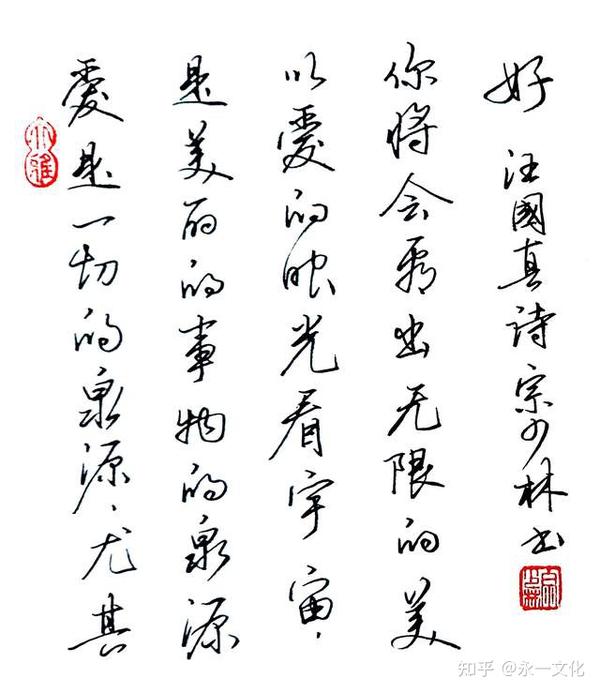 愛是一切的泉源、尤其
是美丽的的事物的泉源
以愛的眼光看宇宙、
你将会看出无限的美
好 汪國真诗宗少林书
大雅
知乎 @永一文化